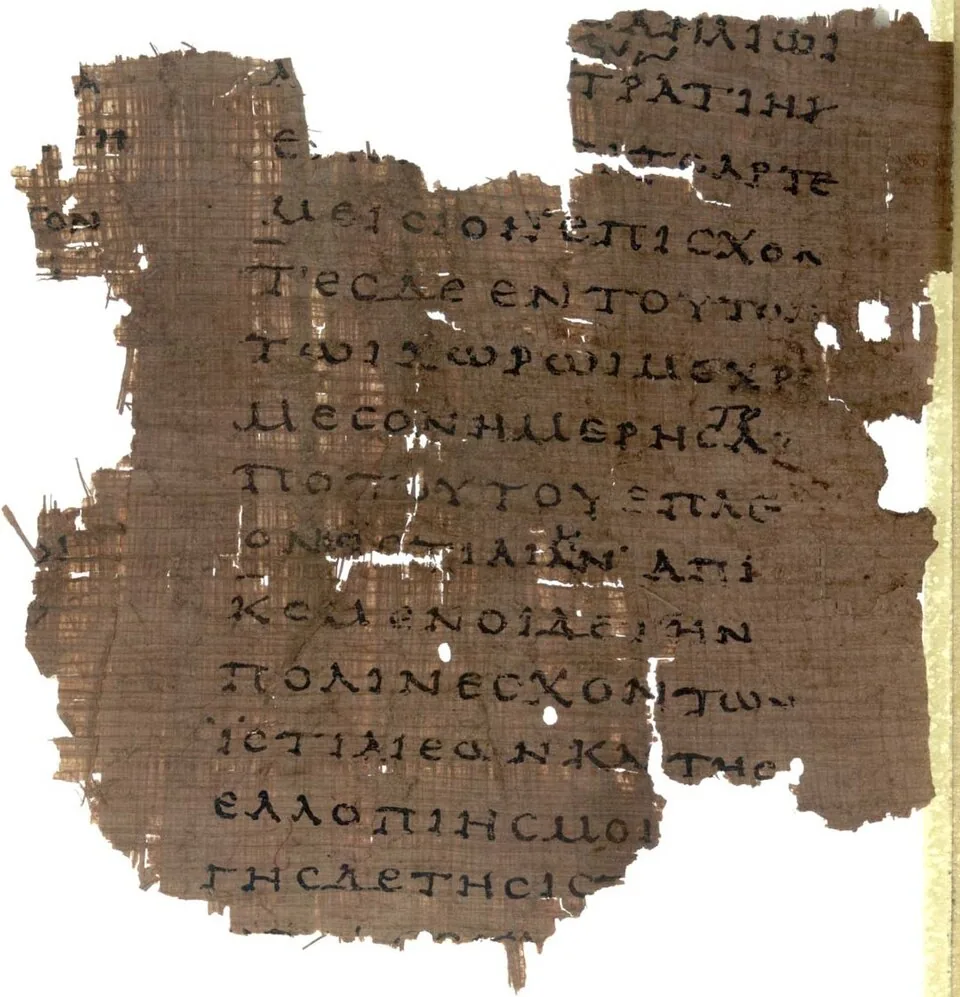 ΤΟΝ
ΑΗΛΙΩΙ
ΤΡΑΤΙΗΙ
ΑΡΤΕ
ΜΕΙΣΙΟΝ ΕΠΙΣΧΟΝ
ΤΕΣΔΕ ΕΝ ΤΟΥΤΩΙ
ΤΩΙ ΧΩΡΩΙ ΜΕΧΡΙ
ΜΕΣΟΝ ΗΜΕΡΗΣ ΤΟ Α
ΠΟ ΤΟΥΤΟΥ ΕΠΛΕ
ΟΝ ΕΣ ΙΣΤΙΑΙΗΝ ΑΠΙ
ΚΟΜΕΝΟΙ ΔΕ ΤΗΝ
ΠΟΛΙΝ ΕΣΧΟΝ ΤΩΝ
ΪΣΤΙΑΙΕΩΝ ΚΑΙ ΤΗΣ
ΕΛΛΟΠΙΗΣ ΜΟΙ
ΓΗΣ ΔΕ ΤΗΣ ΙΣΤ